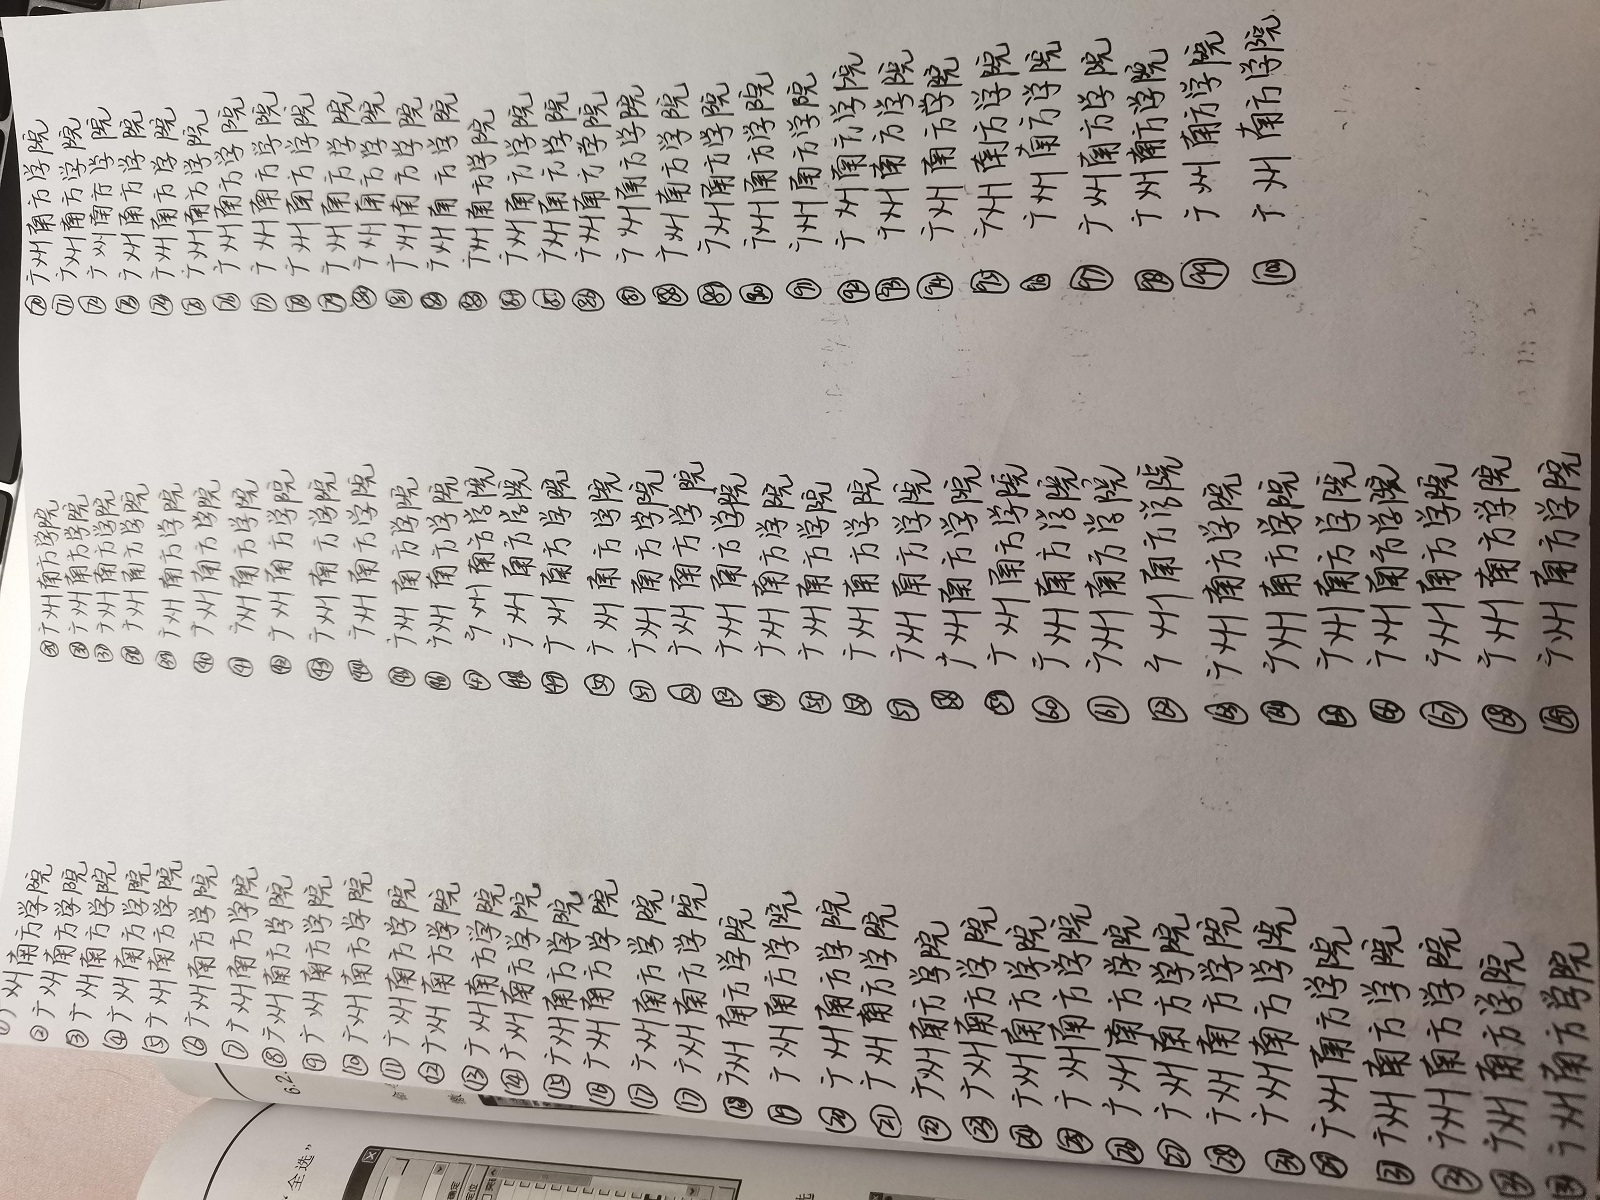 ① 广州南方学院
② 广州南方学院
③ 广州南方学院
④ 广州南方学院
⑤ 广州南方学院
⑥ 广州南方学院
⑦ 广州南方学院
⑧ 广州南方学院
⑨ 广州南方学院
⑩ 广州南方学院
⑪ 广州南方学院
⑫ 广州南方学院
⑬ 广州南方学院
⑭ 广州南方学院
⑮ 广州南方学院
⑯ 广州南方学院
⑰ 广州南方学院
⑰ 广州南方学院
⑱ 广州南方学院
⑲ 广州南方学院
⑳ 广州南方学院
㉑ 广州南方学院
㉒ 广州南方学院
㉓ 广州南方学院
㉔ 广州南方学院
㉕ 广州南方学院
㉖ 广州南方学院
㉗ 广州南方学院
㉘ 广州南方学院
㉚ 广州南方学院
㉙ 广州南方学院
㉛ 广州南方学院
广州南方学院
㉝ 广州南方学院
㉞ 广州南方学院
㉟ 广州南方学院
㊱ 广州南方学院
㊲ 广州南方学院
㊳ 广州南方学院
㊴ 广州南方学院
㊵ 广州南方学院
㊶ 广州南方学院
㊷ 广州南方学院
㊸ 广州南方学院
㊹ 广州南方学院
㊺ 广州南方学院
㊻ 广州南方学院
㊼ 广州南方学院
㊽ 广州南方学院
㊾ 广州南方学院
㊿ 广州南方学院
51 广州南方学院
52 广州南方学院
53 广州南方学院
54 广州南方学院
55 广州南方学院
56 广州南方学院
57 广州南方学院
58 广州南方学院
59 广州南方学院
60 广州南方学院
61 广州南方学院
62 广州南方学院
63 广州南方学院
64 广州南方学院
65 广州南方学院
66 广州南方学院
67 广州南方学院
68 广州南方学院
69 广州南方学院
70 广州南方学院
71 广州南方学院
72 广州南方学院
73 广州南方学院
74 广州南方学院
75 广州南方学院
76 广州南方学院
77 广州南方学院
78 广州南方学院
79 广州南方学院
80 广州南方学院
81 广州南方学院
82 广州南方学院
83 广州南方学院
84 广州南方学院
85 广州南方学院
86 广州南方学院
87 广州南方学院
88 广州南方学院
89 广州南方学院
90 广州南方学院
91 广州南方学院
92 广州南方学院
93 广州南方学院
94 广州南方学院
95 广州南方学院
96 广州南方学院
97 广州南方学院
98 广州南方学院
99 广州南方学院
100 广州南方学院
6.2.
“全选”